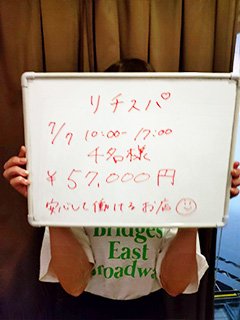 リチスパ♡
7/7 10:00-17:00
4名様
¥57,000円
安心して働けるお店☺
Bridges
East
Broadway